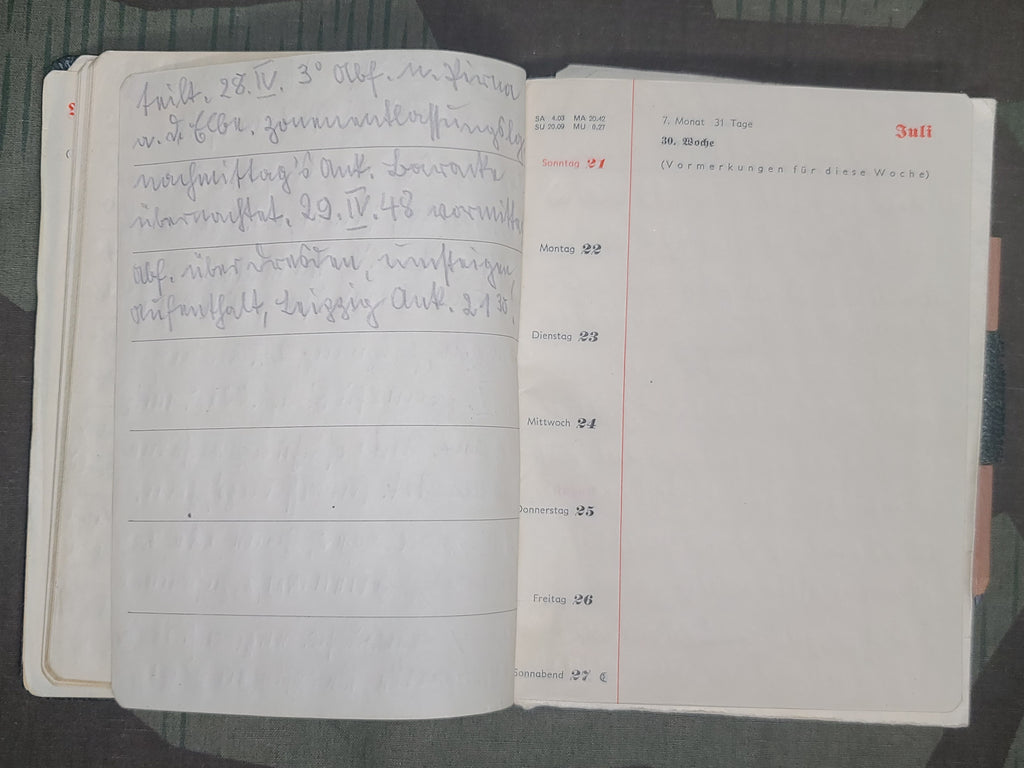 teilt. 28. IV. 3° Abf. n. Pirna
a. d. Elbe. Zonenentlassungslg
nachmittag's Ank. Baracke
übernachtet. 29. IV. 48 vormitta
Abf. über Dresden, umsteigen
Aufenthalt, Leipzig Ank. 21 30.
SA 4.03 MA 20.42
SU 20.09 MU 0.27
7. Monat 31 Tage
Juli
30. Woche
(Vormerkungen für diese Woche)
Sonntag 21
Montag 22
Dienstag 23
Mittwoch 24
Donnerstag 25
Freitag 26
Sonnabend 27